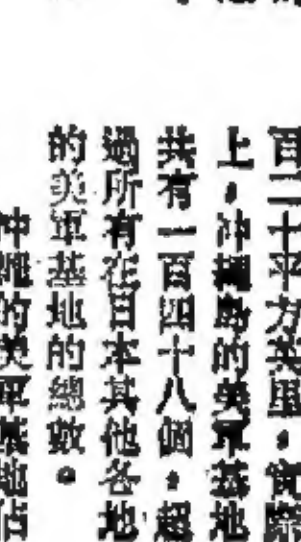 百二十平方英里。實際
上,冲繩島的美軍基地
共有一百四十八個,超
過所有在日本其他各地
的美軍基地的總數。
冲繩的美軍基地佔